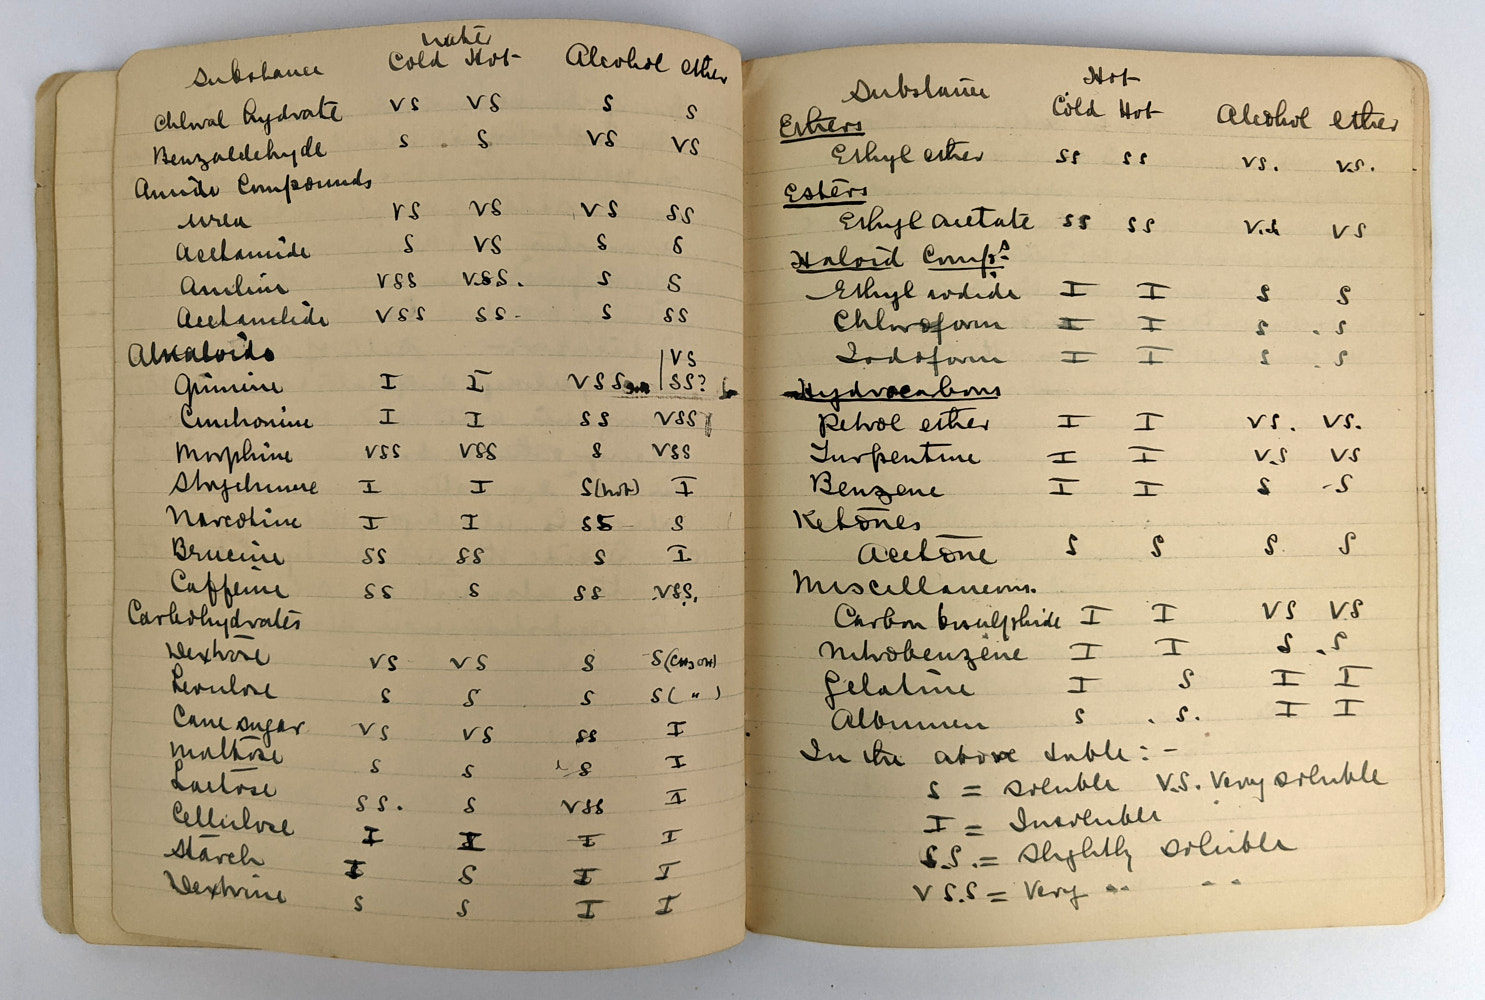 Water
Substance Cold Hot Alcohol ether
Chloral hydrate VS VS S S
Benzaldehyde S S VS VS
Amide Compounds
Urea VS VS VS SS
Acetamide S VS S S
Aniline VSS VSS. S S
Acetanilide VSS SS- S SS
Alkaloids VS
Quinine I I VSS SS?
Cinchonine I I SS VSS
Morphine VSS VSS S VSS
Strychnine I I S(hot) I
Narcotine I I SS S
Brucine SS SS S I
Caffeine SS S SS VSS.
Carbohydrates
Dextrose VS VS S S(CH3OH)
Levulose S S S S( " )
Cane sugar VS VS SS I
Maltose S S S I
Lactose SS. S VSS I
Cellulose I I I I
Starch I S I I
Dextrine S S I I
Hot
Substance Cold Hot Alcohol ether
Ethers
Ethyl ether SS SS VS. VS.
Esters
Ethyl acetate SS SS V.S VS
Haloid Comps.
Ethyl iodide I I S S
Chloroform I I S S
Iodoform I I S S
Hydrocarbons
Petrol ether I I VS. VS.
Turpentine I I V.S VS
Benzene I I S -S
Ketones
Acetone S S S S
Miscellaneous.
Carbon bisulphide I I VS VS
Nitrobenzene I I S S
Gelatine I S I I
Albumen S S. I I
In the above table:-
S = soluble V.S. Very soluble
I = Insoluble
S.S. = Slightly soluble
V S.S = Very " "